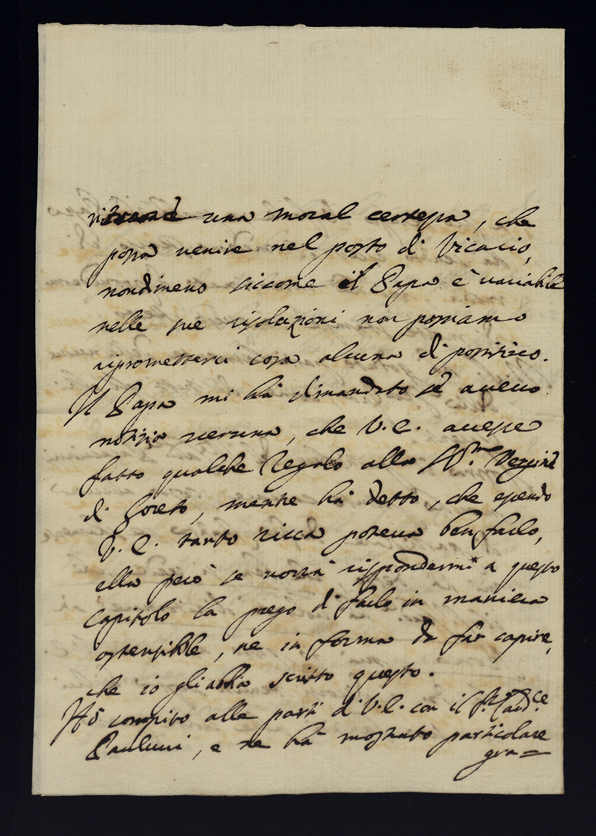 una moral certezza, che
possa venire nel posto di Vicario,
nondimeno siccome il Papa è variabile
nelle sue risoluzioni non possiamo
ripromettersi cosa alcuna di positivo.
Il Papa mi hà dimandato se avevo
notizia veruna, che V.E. avesse
fatto qualche regalo alla SSma Vergine
di Loreto, mentre hà detto, che essendo
V.E. tanto ricca poteva ben farlo,
ella però se vorrà rispondermi a questo
capitolo la prego di farlo in maniera
ostensibile, ne in forma da far capire,
che io gli abbia scritto questo.
Hò compito alle parti di V.E. con il Sr. Cardce
Paulucci, e ne hà mostrato particolare
gra=